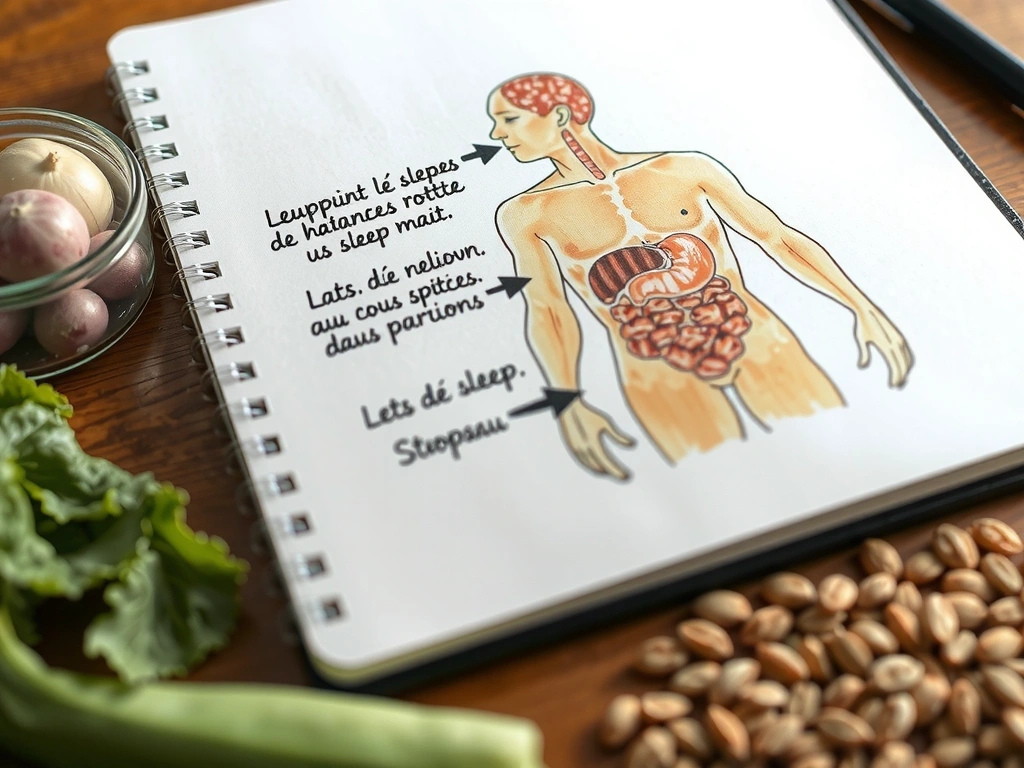 Leuppiint lé slepes
de hatances rottte
us sleep mait.
Lats. díe neliovn.
au cous spitíces.
daus pariions
Lets dé sleep.
Stropsau